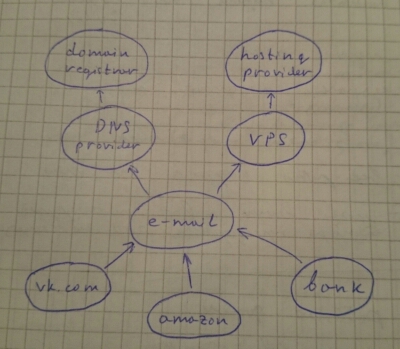 domain
registrar
hosting
provider
DNS
provider
VPS
e-mail
vk.com
amazon
bank